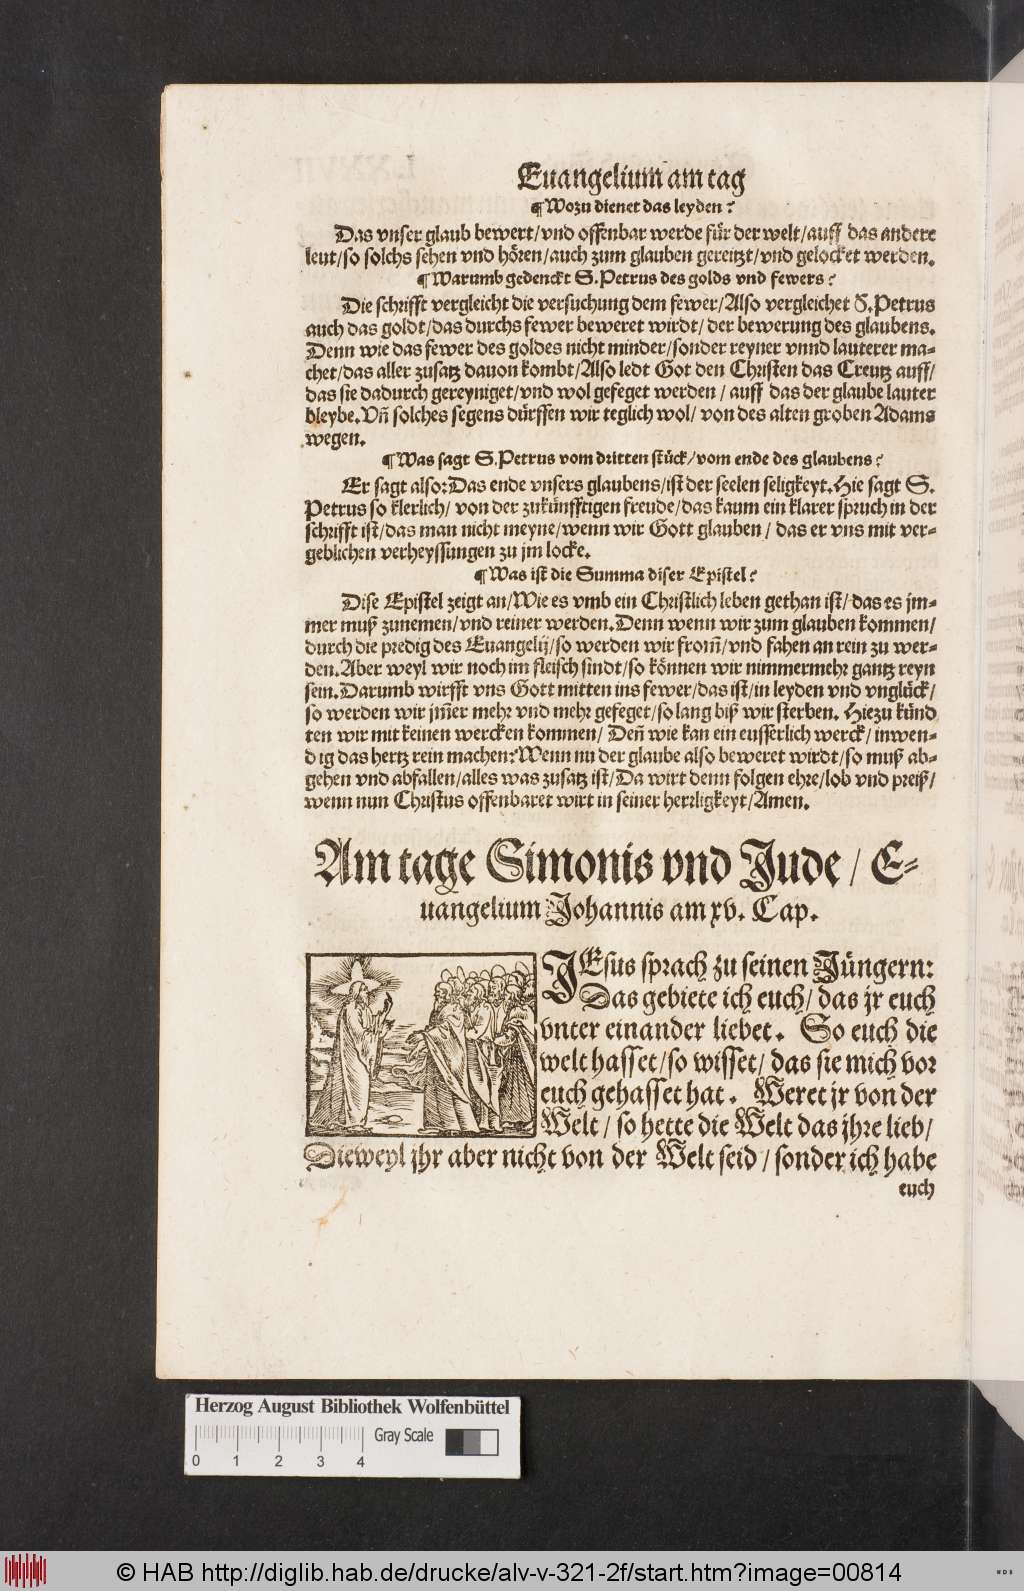 Euangelium am tag
¶ Wozu dienet das leyden?
Das vnser glaub bewert/vnd offenbar werde für der welt/auff das andere
leut/so solchs sehen vnd hören/auch zum glauben gereitzt/vnd gelocket werden.
¶ Warumb gedenckt S.Petrus des golds vnd fewers?
Die schrifft vergleicht die versuchung dem fewer/Also vergleichet S.Petrus
auch das goldt/das durchs fewer beweret wirdt/ der bewerung des glaubens.
Denn wie das fewer des goldes nicht minder/sonder reyner vnnd lauterer ma-
chet/das aller zusatz dauon kombt/Also ledt Got den Christen das Creutz auff/
das sie dadurch gereyniget/vnd wol gefeget werden / auff das der glaube lauter
bleybe.Vn̄ solches segens dürffen wir teglich wol/ von des alten groben Adams
wegen.
¶ Was sagt S.Petrus vom dritten stück/vom ende des glaubens?
Er sagt also:Das ende vnsers glaubens/ist der seelen seligkeyt.Hie sagt S.
Petrus so klerlich/ von der zukünfftigen freude/das kaum ein klarer spruch in der
schrifft ist/das man nicht meyne/wenn wir Gott glauben / das er vns mit ver-
geblichen verheyssungen zu jm locke.
¶ Was ist die Summa diser Epistel?
Dise Epistel zeigt an/Wie es vmb ein Christlich leben gethan ist/ das es jm-
mer muß zunemen/vnd reiner werden.Denn wenn wir zum glauben kommen/
durch die predig des Euangelij/so werden wir from̄/vnd fahen an rein zu wer-
den.Aber weyl wir noch im fleisch sindt/so können wir nimmermehr gantz reyn
sein.Darumb wirfft vns Gott mitten ins fewer/das ist/in leyden vnd vnglück/
so werden wir jm̄er mehr vnd mehr gefeget/so lang biß wir sterben. Hiezu künd
ten wir mit keinen wercken kommen/ Den̄ wie kan ein eusserlich werck/ inwen-
dig das hertz rein machen?Wenn nu der glaube also beweret wirdt/so muß ab-
gehen vnd abfallen/alles was zusatz ist/Da wirt denn folgen ehre/lob vnd preiß/
wenn nun Christus offenbaret wirt in seiner herrligkeyt/Amen.
Am tage Simonis vnd Jude / E-
uangelium Johannis am xv. Cap.
JEsus sprach zu seinen Jüngern:
Das gebiete ich euch/ das jr euch
vnter einander liebet. So euch die
welt hasset/so wisset/ das sie mich vor
euch gehasset hat. Weret jr von der
Welt / so hette die Welt das jhre lieb/
Dieweyl jhr aber nicht von der Welt seid / sonder ich habe
euch
Herzog August Bibliothek Wolfenbüttel
Gray Scale
0 1 2 3 4
© HAB http://diglib.hab.de/drucke/alv-v-321-2f/start.htm?image=00814